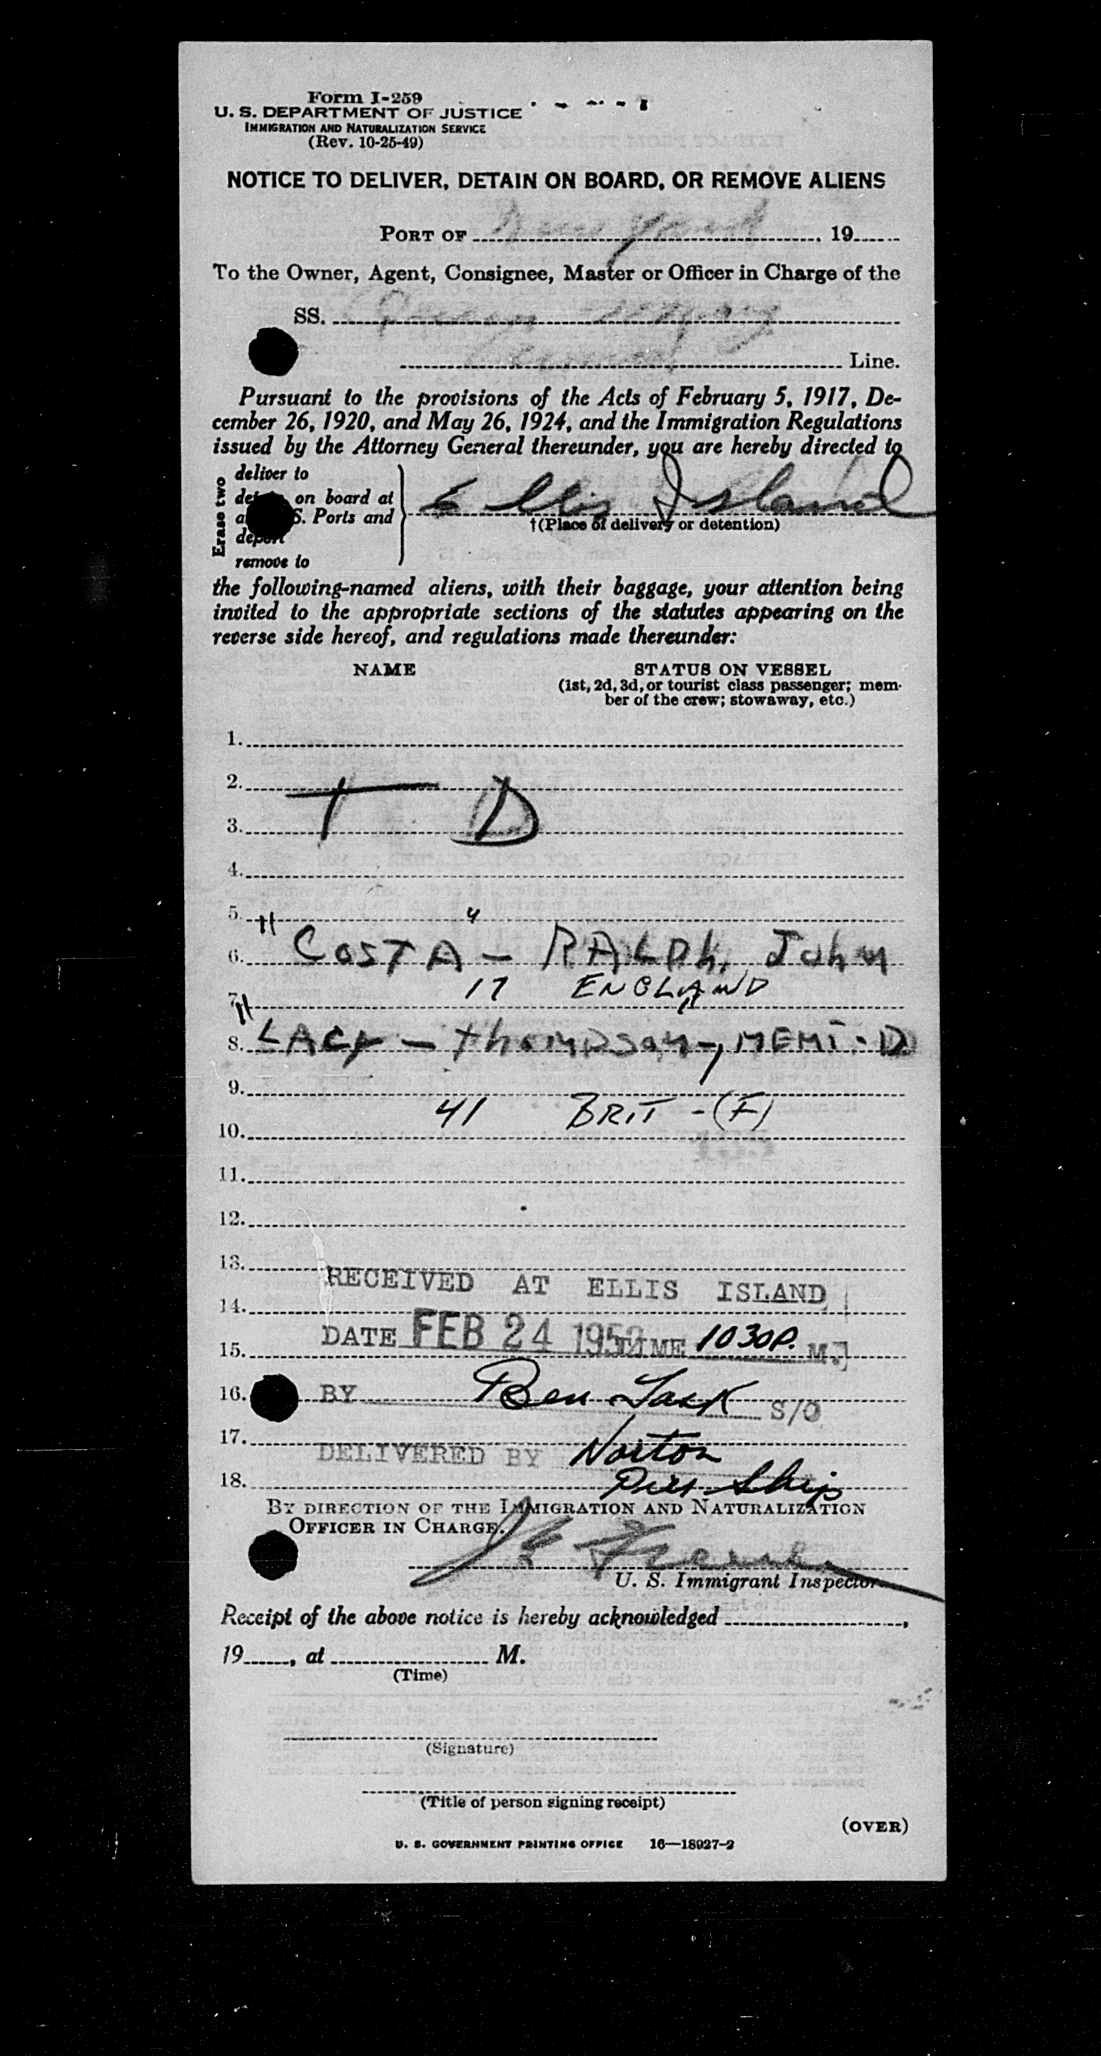 Form I-259
U. S. DEPARTMENT OF JUSTICE
IMMIGRATION AND NATURALIZATION SERVICE
(Rev. 10-25-49)
NOTICE TO DELIVER, DETAIN ON BOARD, OR REMOVE ALIENS
PORT OF New York, 19
To the Owner, Agent, Consignee, Master or Officer in Charge of the
SS. Queen Mary
Cunard Line.
Pursuant to the provisions of the Acts of February 5, 1917, De-
cember 26, 1920, and May 26, 1924, and the Immigration Regulations
issued by the Attorney General thereunder, you are hereby directed to
Erase two
deliver to
on board at
S. Ports and
deport
remove to
Ellis Island
†(Place of delivery or detention)
the following-named aliens, with their baggage, your attention being
invited to the appropriate sections of the statutes appearing on the
reverse side hereof, and regulations made thereunder:
NAME STATUS ON VESSEL
(1st, 2d, 3d, or tourist class passenger; mem-
ber of the crew; stowaway, etc.)
1.
2.
T D
3.
4.
5.
6. " COSTA " - RALPH, John
7. 17 ENGLAND
8. " LACY - Thompson,
9.
41 BRIT - (F)
10.
11.
12.
13.
RECEIVED AT ELLIS ISLAND
14.
DATE FEB 24 TIME 1030P. M.
15.
16. BY Ben S/O
17.
DELIVERED BY Norton
18. Pier Ship
BY DIRECTION OF THE IMMIGRATION AND NATURALIZATION
OFFICER IN CHARGE.
U. S. Immigrant Inspector.
Receipt of the above notice is hereby acknowledged ,
19 , at M.
(Time)
(Signature)
(Title of person signing receipt)
(OVER)
U. S. GOVERNMENT PRINTING OFFICE 16—18927-2